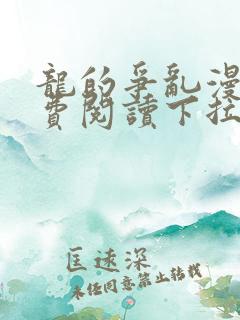 龍的爭亂漫
費閱讀下拉
匡速深
未任同意禁止轉載